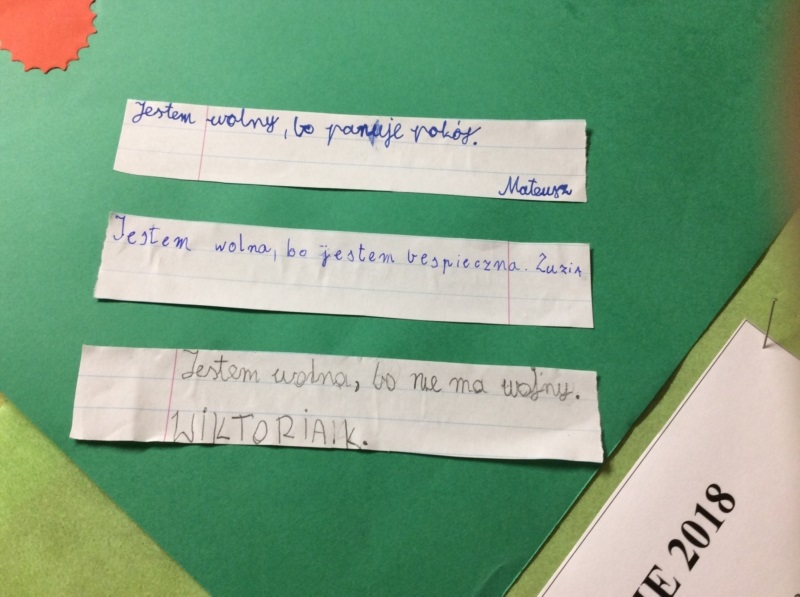 Jestem wolny, bo panuje pokój.
Mateusz
Jestem wolna, bo jestem bespieczna. Zuzia
Jestem wolna, bo nie ma wojny.
WiKTORiAK.
IE 2018